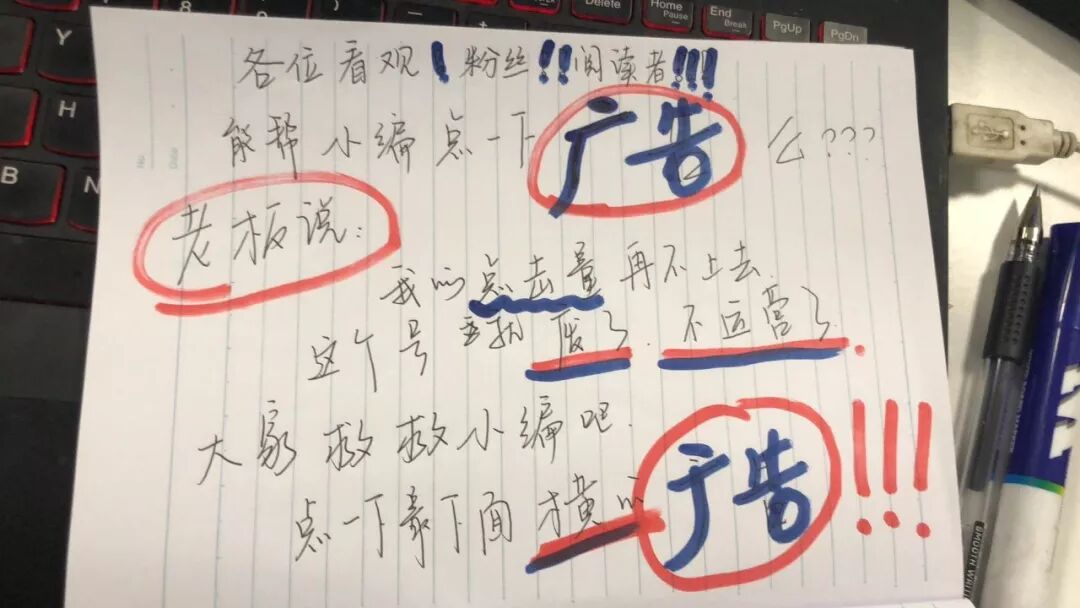 Delete
Home
Pause
End
Break
PgUp
PgDn
Y
H
B
N
No
Date
各位看观！粉丝！！阅读者！！！
能帮小编点一下广告么？？？
老板说：
我的点击量再不上去
这个号就废了.不运营了.
大家救救小编吧.
点一下最下面横的广告！！！
SMOOTH WRIT